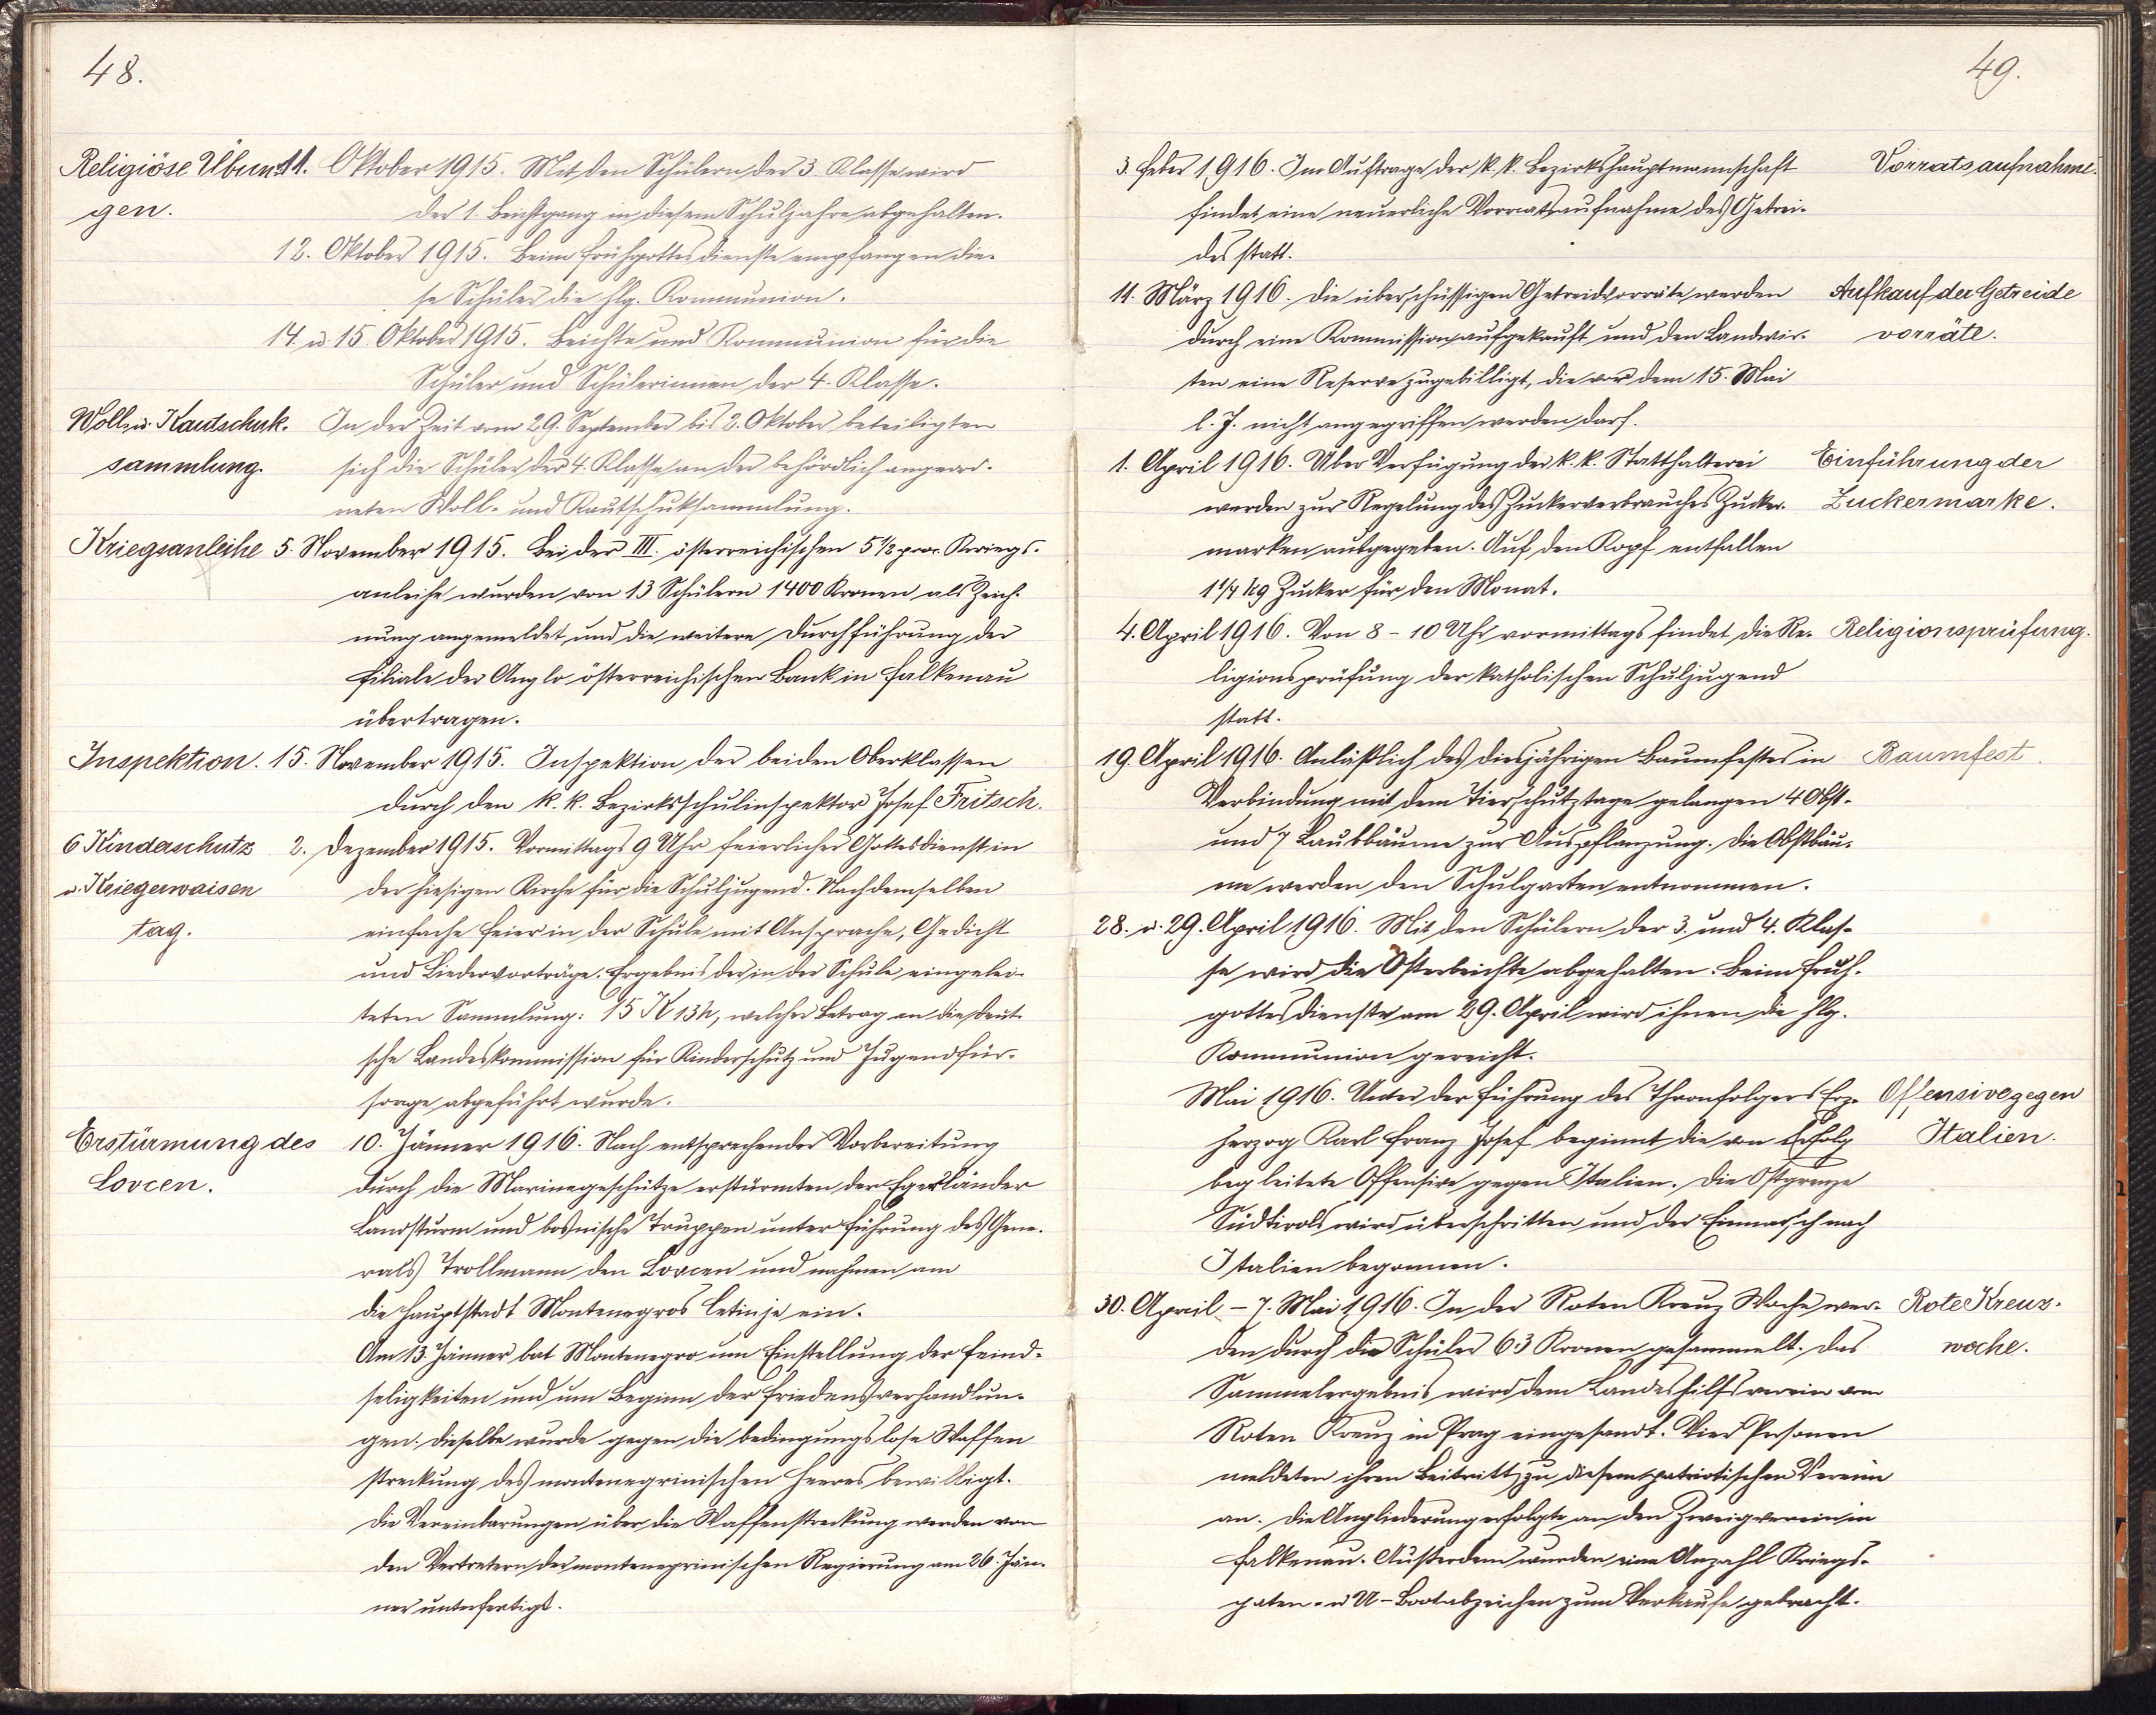 48.
Religiöse Übun- 11. Oktober 1915. Mit den Schülern der 3. Klasse wird
gen. der 1. Beichtgang in diesem Schuljahre abgehalten.
12. Oktober 1915. Beim Frühgottesdienste empfangen die-
se Schüler die hlg. Kommunion.
14. u. 15. Oktober 1915. Beichte und Kommunion für die
Schüler und Schülerinnen der 4. Klasse.
Woll- u. Kautschuk- In der Zeit vom 29. September bis 2. Oktober beteiligten
sammlung. sich die Schüler der 4. Klasse an der behördlich angeord-
neten Woll- und Kautschuksammlung.
Kriegsanleihe 5. November 1915. Bei der III. österreichischen 5 1/2 proz. Kriegs-
anleihe wurden von 13 Schülern 1400 Kronen als Zeich-
nung angemeldet und die weitere Durchführung der
Filiale der Anglo österreichischen Bank in Falkenau
übertragen.
Inspektion. 15. November 1915. Inspektion der beiden Oberklassen
durch den k. k. Bezirksschulinspektor Josef Fritsch.
6 Kinderschutz 2. Dezember 1915. Vormittags 9 Uhr feierlicher Gottesdienst in
u. Kriegerwaisen der hiesigen Kirche für die Schuljugend. Nach demselben
tag. einfache Feier in der Schule mit Ansprache, Gedicht
und Liedervorträge. Ergebnis der in der Schule eingelei-
teten Sammlung: 15 K 13 h, welcher Betrag an die deut-
sche Landeskommission für Kinderschutz und Jugendfür-
sorge abgeführt wurde.
Erstürmung des 10. Jänner 1916. Nach entsprechender Vorbereitung
Lovcen. durch die Marinegeschütze erstürmten der Egerländer
Landsturm und bosnische Truppen unter Führung des Gene-
rals Trollmann den Lovcen und nahmen am
die Hauptstadt Montenegros Cetinje ein.
Am 13. Jänner bat Montenegro um Einstellung der Feind-
seligkeiten und um Beginn der Friedensverhandlun-
gen. Dieselbe wurde gegen die bedingungslose Waffen
streckung des montenegrinischen Heeres bewilligt.
Die Vereinbarungen über die Waffenstreckung werden von
den Vertretern der montenegrinischen Regierung am 26. Jän-
ner unterfertigt.
49.
3. Feber 1916. Im Auftrage der k. k. Bezirkshauptmannschaft Vorratsaufnahme.
findet eine neuerliche Vorratsaufnahme des Getrei-
des statt.
11. März 1916. Die überschüssigen Getreidvorräte werden Aufkauf der Getreide
durch eine Kommission aufgekauft und den Landwir- vorräte.
ten eine Reserve zugebilligt, die vor dem 15. Mai
l. J. nicht angegriffen werden darf.
1. April 1916. Über Verfügung der k. k. Statthalterei Einführung der
werden zur Regelung des Zuckerverbrauches Zucker- Zuckermarke.
marken ausgegeben. Auf den Kopf entfallen
1 1/4 kg Zucker für den Monat.
4. April 1916. Von 8 - 10 Uhr vormittags findet die Re- Religionsprüfung.
ligionsprüfung der katholischen Schuljugend
statt.
19. April 1916. Anläßlich des diesjährigen Baumfestes in Baumfest.
Verbindung mit dem Tierschutztage gelangen 4 Obst-
und 7 Laubbäume zur Auspflanzung. Die Obstbäu-
me werden den Schulgarten entnommen.
28. u. 29. April 1916. Mit den Schülern der 3. und 4. Klas-
se wird die Osterbeichte abgehalten. Beim Früh-
gottesdienste am 29. April wird ihnen die hlg.
Kommunion gereicht.
Mai 1916. Unter der Führung des Thronfolgers Erz- Offensive gegen
herzog Karl Franz Josef beginnt die von Erfolg Italien.
begleitete Offensive gegen Italien. Die Ostgrenze
Südtirols wird überschritten und der Einmarsch nach
Italien begonnen.
30. April - 7. Mai 1916. In der Roten Kreuz Woche wer- Rote Kreuz-
den durch die Schüler 63 Kronen gesammelt. Das woche.
Sammelergebnis wird dem Landeshilfsverein vom
Roten Kreuz in Prag eingesandt. Vier Personen
meldeten ihren Beitritt zu diesem patriotischen Verein
an. Die Angliederung erfolgte an den Zweigverein in
Falkenau. Außerdem wurden eine Anzahl Kriegs-
paten- u U-Bootabzeichen zum Verkaufe gebracht.